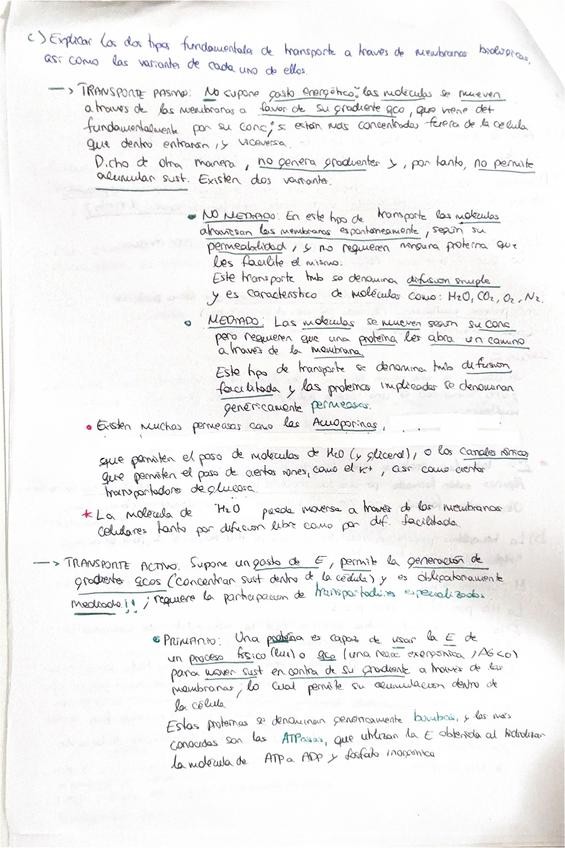 c) Explicar los dos tipos fundamentales de transporte a través de membranas biológicas,
así como las variantes de cada uno de ellos.
—> TRANSPORTE PASIVO: No supone gasto energético: las moléculas se mueven
a través de las membranas a favor de su gradiente qco, que viene det
fundamentalmente por su conc; si están más concentradas fuera de la célula
que dentro entrarán, y viceversa.
Dicho de otra manera, no genera gradientes y, por tanto, no permite
acumular sust. Existen dos variantes.
• NO MEDIADO: En este tipo de transporte las moléculas
atraviesan las membranas espontáneamente, según su
permeabilidad, y no requieren ninguna proteína que
les facilite el mismo.
Este transporte tmb se denomina difusión simple
y es característico de moléculas como: H2O, CO2, O2, N2.
• MEDIADO: Las moléculas se mueven según su conc
pero requieren que una proteína les abra un camino
a través de la membrana
Este tipo de transporte se denomina tmb difusión
facilitada y las proteínas implicadas se denominan
genéricamente permeasas.
• Existen muchas permeasas como las Acuoporinas,
que permiten el paso de moléculas de H2O (y glicerol), o los canales iónicos
que permiten el paso de ciertos iones, como el K+, así como ciertos
transportadores de glucosa.
* La molécula de H2O puede moverse a través de las membranas
celulares tanto por difusión libre como por dif. facilitada.
—> TRANSPORTE ACTIVO. Supone un gasto de E, permite la generación de
gradientes qcos (concentran sust dentro de la célula) y es obligatoriamente
mediado!!; requiere la participación de transportadores especializados.
• PRIMARIO: Una proteína es capaz de usar la E de
un proceso físico (luz) o qco (una reacc exergónica, ΔG<0)
para mover sust en contra de su gradiente a través de las
membranas, lo cual permite su acumulación dentro de
la célula
Estas proteínas se denominan genéricamente bombas, y las más
conocidas son las ATPasas, que utilizan la E obtenida al hidrolizar
la molécula de ATP a ADP y fosfato inorgánico